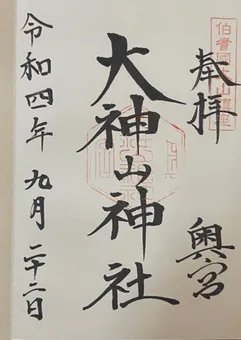 奉拝
奥宮
大神山神社
令和四年九月二十二日